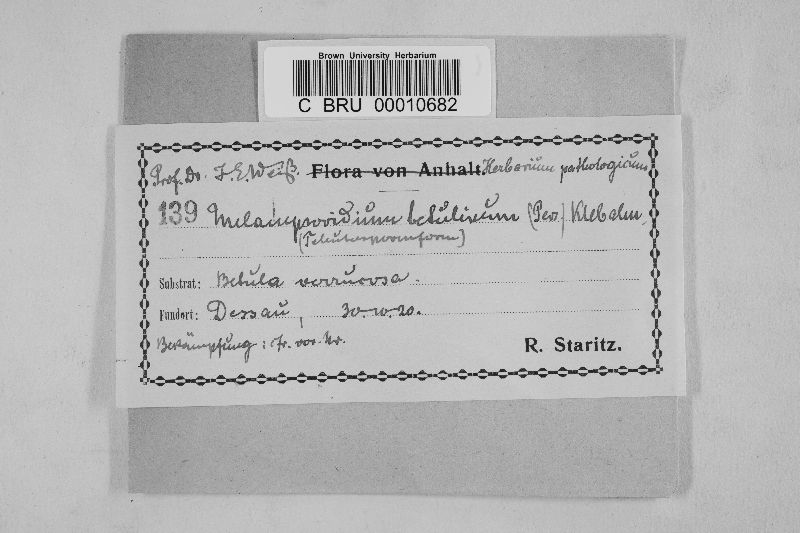 Brown University Herbarium
C BRU 00010682
Prof. Dr. J. E. Weiß. Flora von Anhalt Herbarium pathologicum
139 Melampsoridium betulinum (Pers.) Klebahn
(Teleutosporenform)
Substrat: Betula verrucosa.
Fundort: Dessau, 30.10.20.
Bekämpfung: Nr.
R. Staritz.